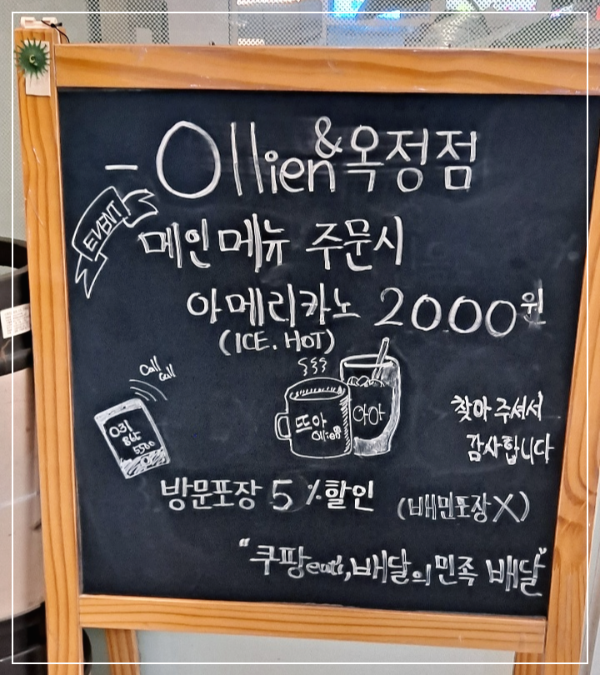 - Ollien& 옥정점
EVENT
메인메뉴 주문시
아메리카노 2000원
(ICE. HOT)
Call call
031
865
5500
뜨아
Ollien
아아
찾아 주셔서
감사합니다
방문포장 5%할인 (배민포장X)
"쿠팡eats, 배달의민족 배달"